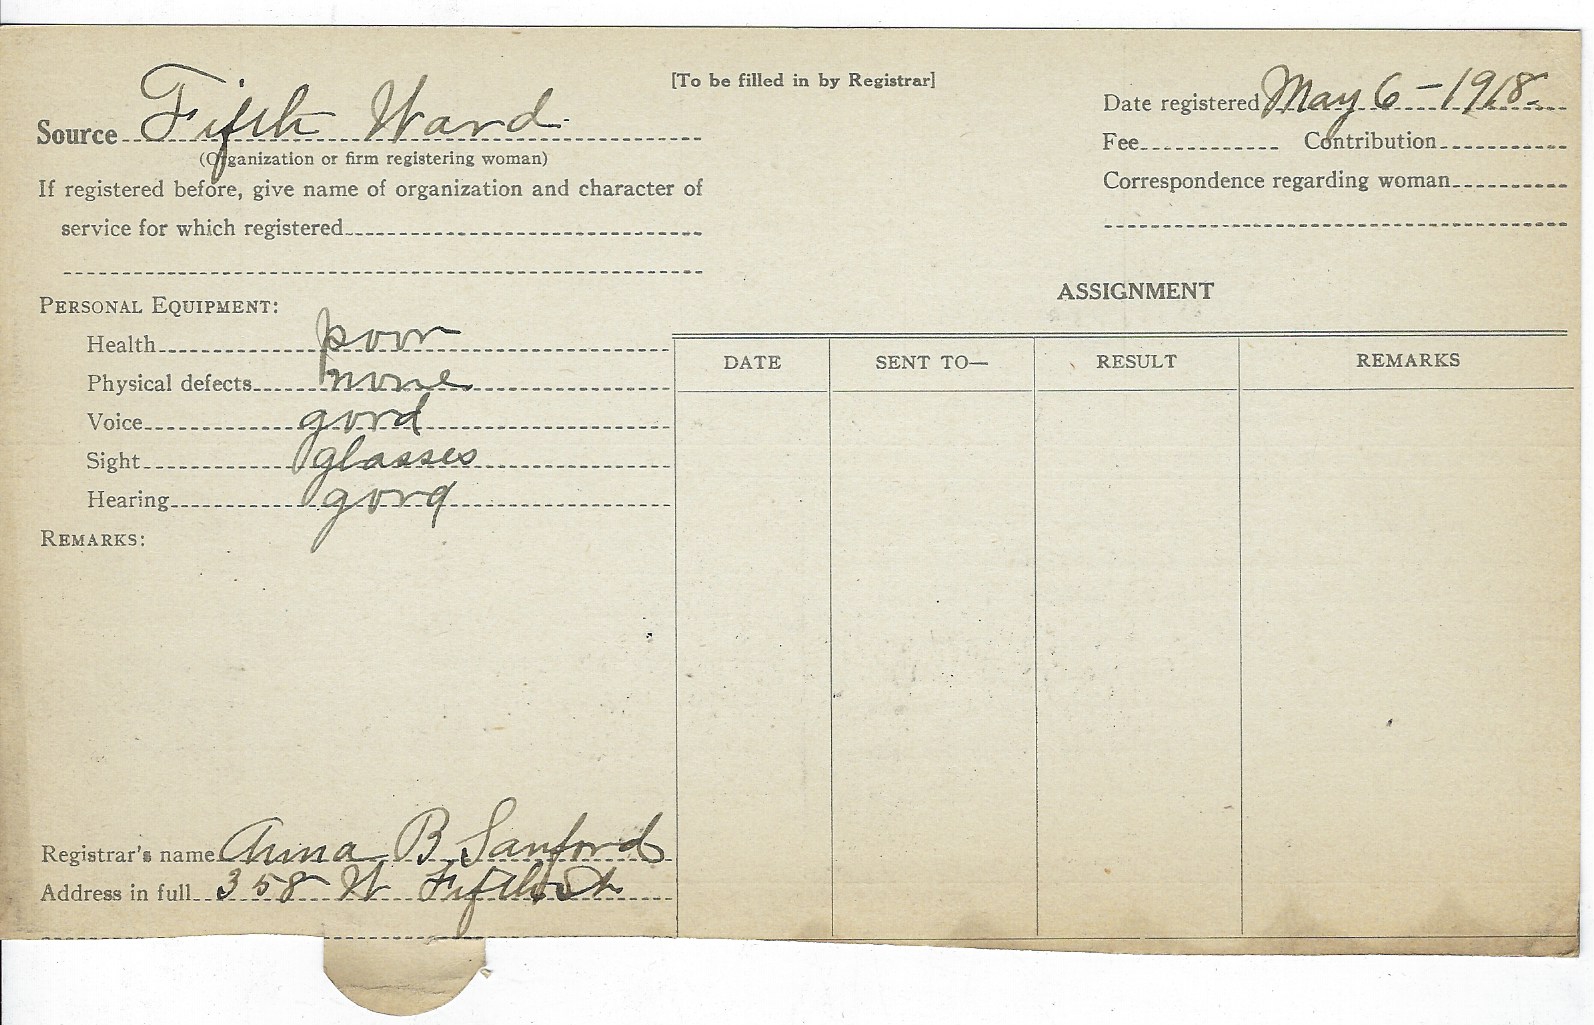 [To be filled in by Registrar]
Source Fifth Ward
(Organization or firm registering woman)
If registered before, give name of organization and character of
service for which registered
Date registered May 6-1918.
Fee Contribution
Correspondence regarding woman
PERSONAL EQUIPMENT:
Health poor
Physical defects none
Voice good
Sight glasses
Hearing good
REMARKS:
Registrar's name Anna B Sanford
Address in full 358 W Fifth St
ASSIGNMENT
DATE SENT TO— RESULT REMARKS